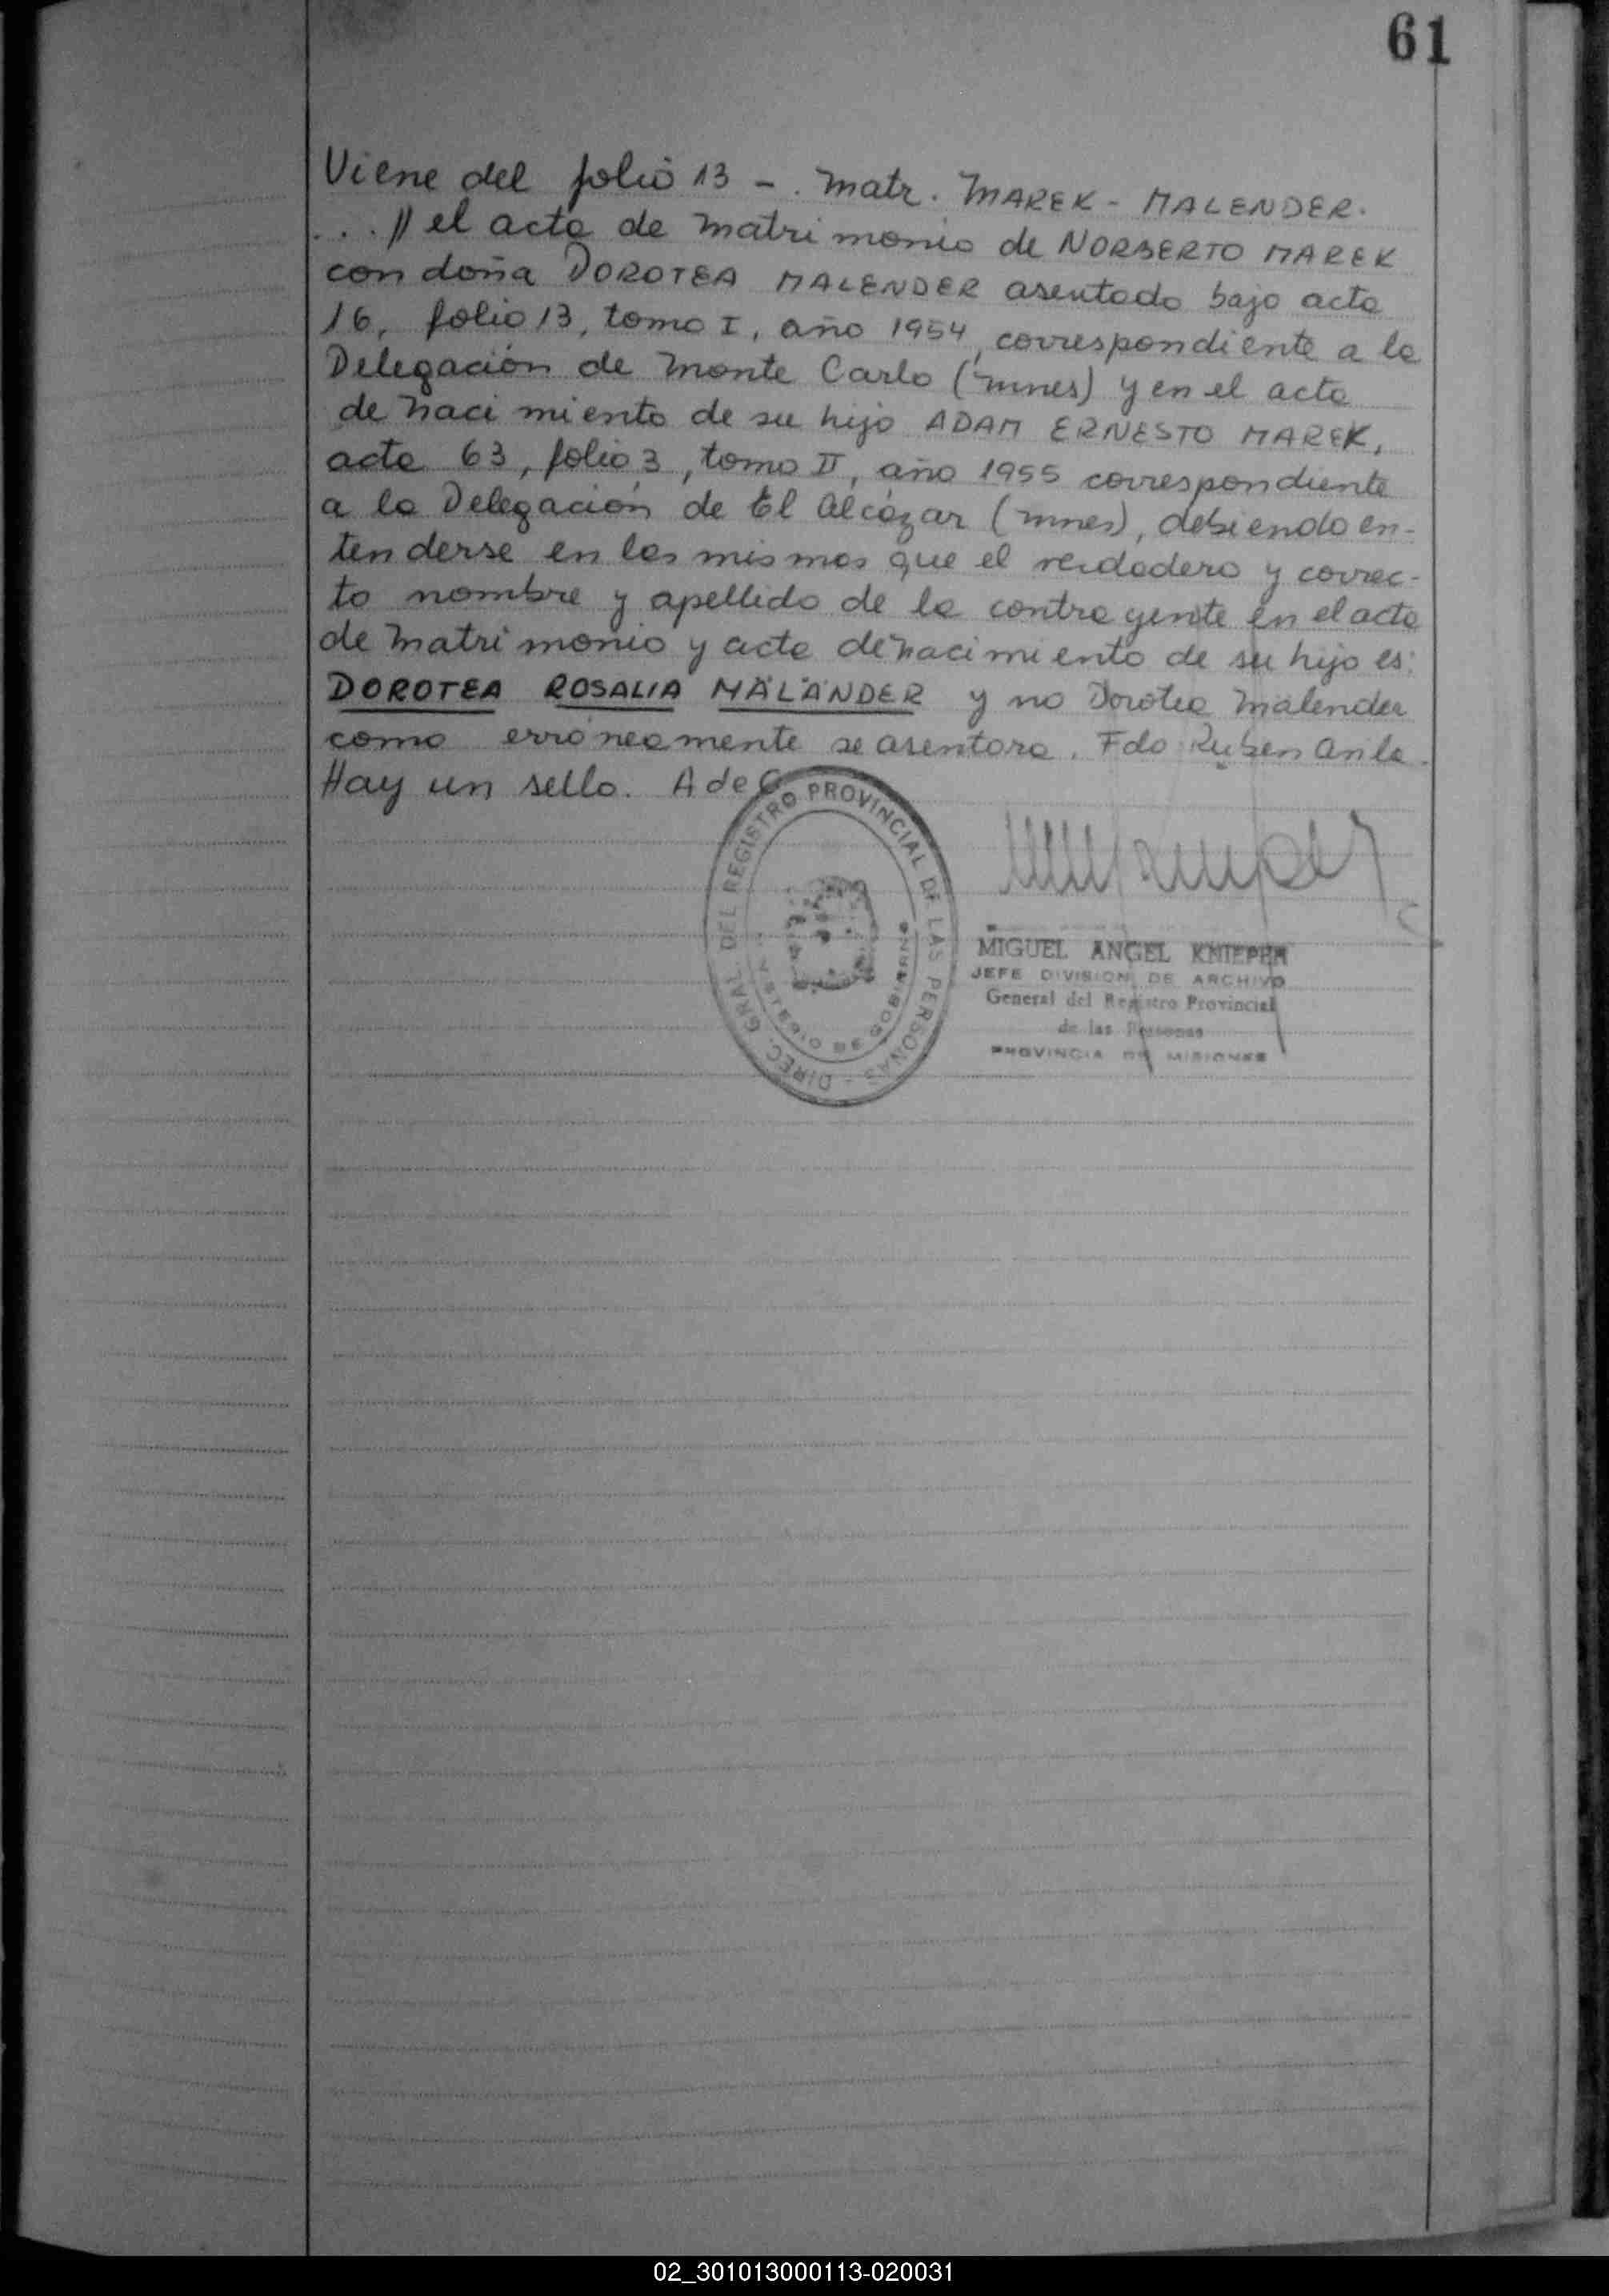 61
Viene del folio 13 - . Matr. MAREK - MALENDER.
...// el acta de matrimonio de NORBERTO MAREK
con doña DOROTEA MALENDER asentado bajo acta
16, folio 13, tomo I, año 1954, correspondiente a la
Delegación de Monte Carlo (Mnes) y en el acta
de nacimiento de su hijo ADAM ERNESTO MAREK,
acta 63, folio 3, tomo II, año 1955 correspondiente
a la Delegación de El Alcázar (Mnes), debiendo en-
tenderse en los mismos que el verdadero y correc-
to nombre y apellido de la contrayente en el acta
de matrimonio y acta de nacimiento de su hijo es:
DOROTEA ROSALIA MÄLÄNDER y no Dorotea Malender
como erróneamente se asentara. Fdo Ruben
Hay un sello. A de G
DIREC. GRAL. DEL REGISTRO PROVINCIAL DE LAS PERSONAS -
MINISTERIO DE GOBIERNO
MIGUEL ANGEL KNIEPER
JEFE DIVISION DE ARCHIVO
General del Registro Provincial
de las Personas
PROVINCIA DE MISIONES
02_301013000113-020031